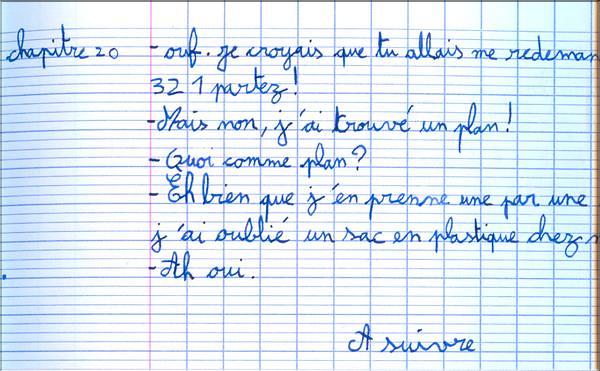 chapitre 20 - ouf. je croyais que tu allais me redeman
3 2 1 partez!
- Mais non, j'ai trouvé un plan!
- Quoi comme plan?
- Eh bien que j'en prenne une par une
j'ai oublié un sac en plastique chez
- Ah oui.
A suivre